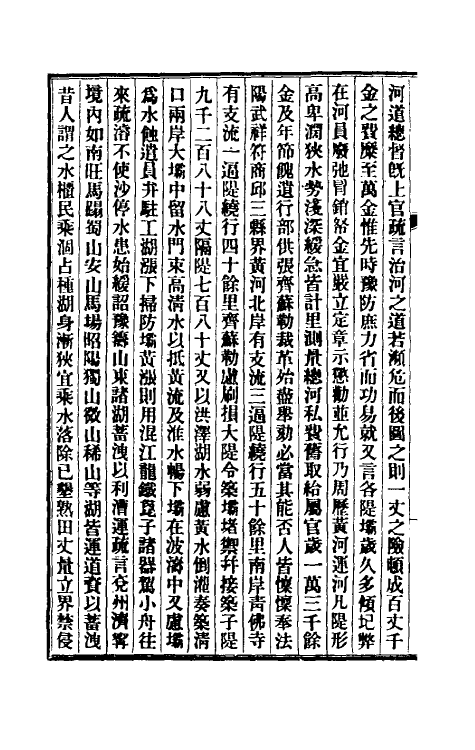 河道總督旣上官疏言治河之道若瀕危而後圖之則一丈之險頓成百丈千
金之費糜至萬金惟先時豫防庶力省而功易就又言各隄壩歲久多傾圮弊
在河員廢弛冒銷帑金宜嚴立定章示懲勸並允行乃周歷黃河運河凡隄形
高卑濶狹水勢淺深緩急皆計里測量總河私費舊取給屬官歲一萬三千餘
金及年節餽遺行部供張齊蘇勒裁革始盡舉劾必當其能否人皆懍懍奉法
陽武祥符商邱三縣界黃河北岸有支流三逼隄繞行五十餘里南岸靑佛寺
有支流一逼隄繞行四十餘里齊蘇勒慮刷損大隄令築壩堵禦幷接築子隄
九千二百八十八丈隔隄七百八十丈又以洪澤湖水弱慮黃水倒灌奏築淸
口兩岸大壩中留水門束高淸水以抵黃流及淮水暢下壩在波濤中又慮壩
爲水蝕遣員弁駐工湖漲下掃防壩黃漲則用混江龍鐵篦子諸器駕小舟往
來疏濬不使沙停水患始緩詔豫籌山東諸湖蓄洩以利漕運疏言兗州濟寧
境內如南旺馬蹋蜀山安山馬場昭陽獨山微山稀山等湖皆運道資以蓄洩
昔人謂之水櫃民乘涸占種湖身漸狹宜乘水落除已墾熟田丈量立界禁侵